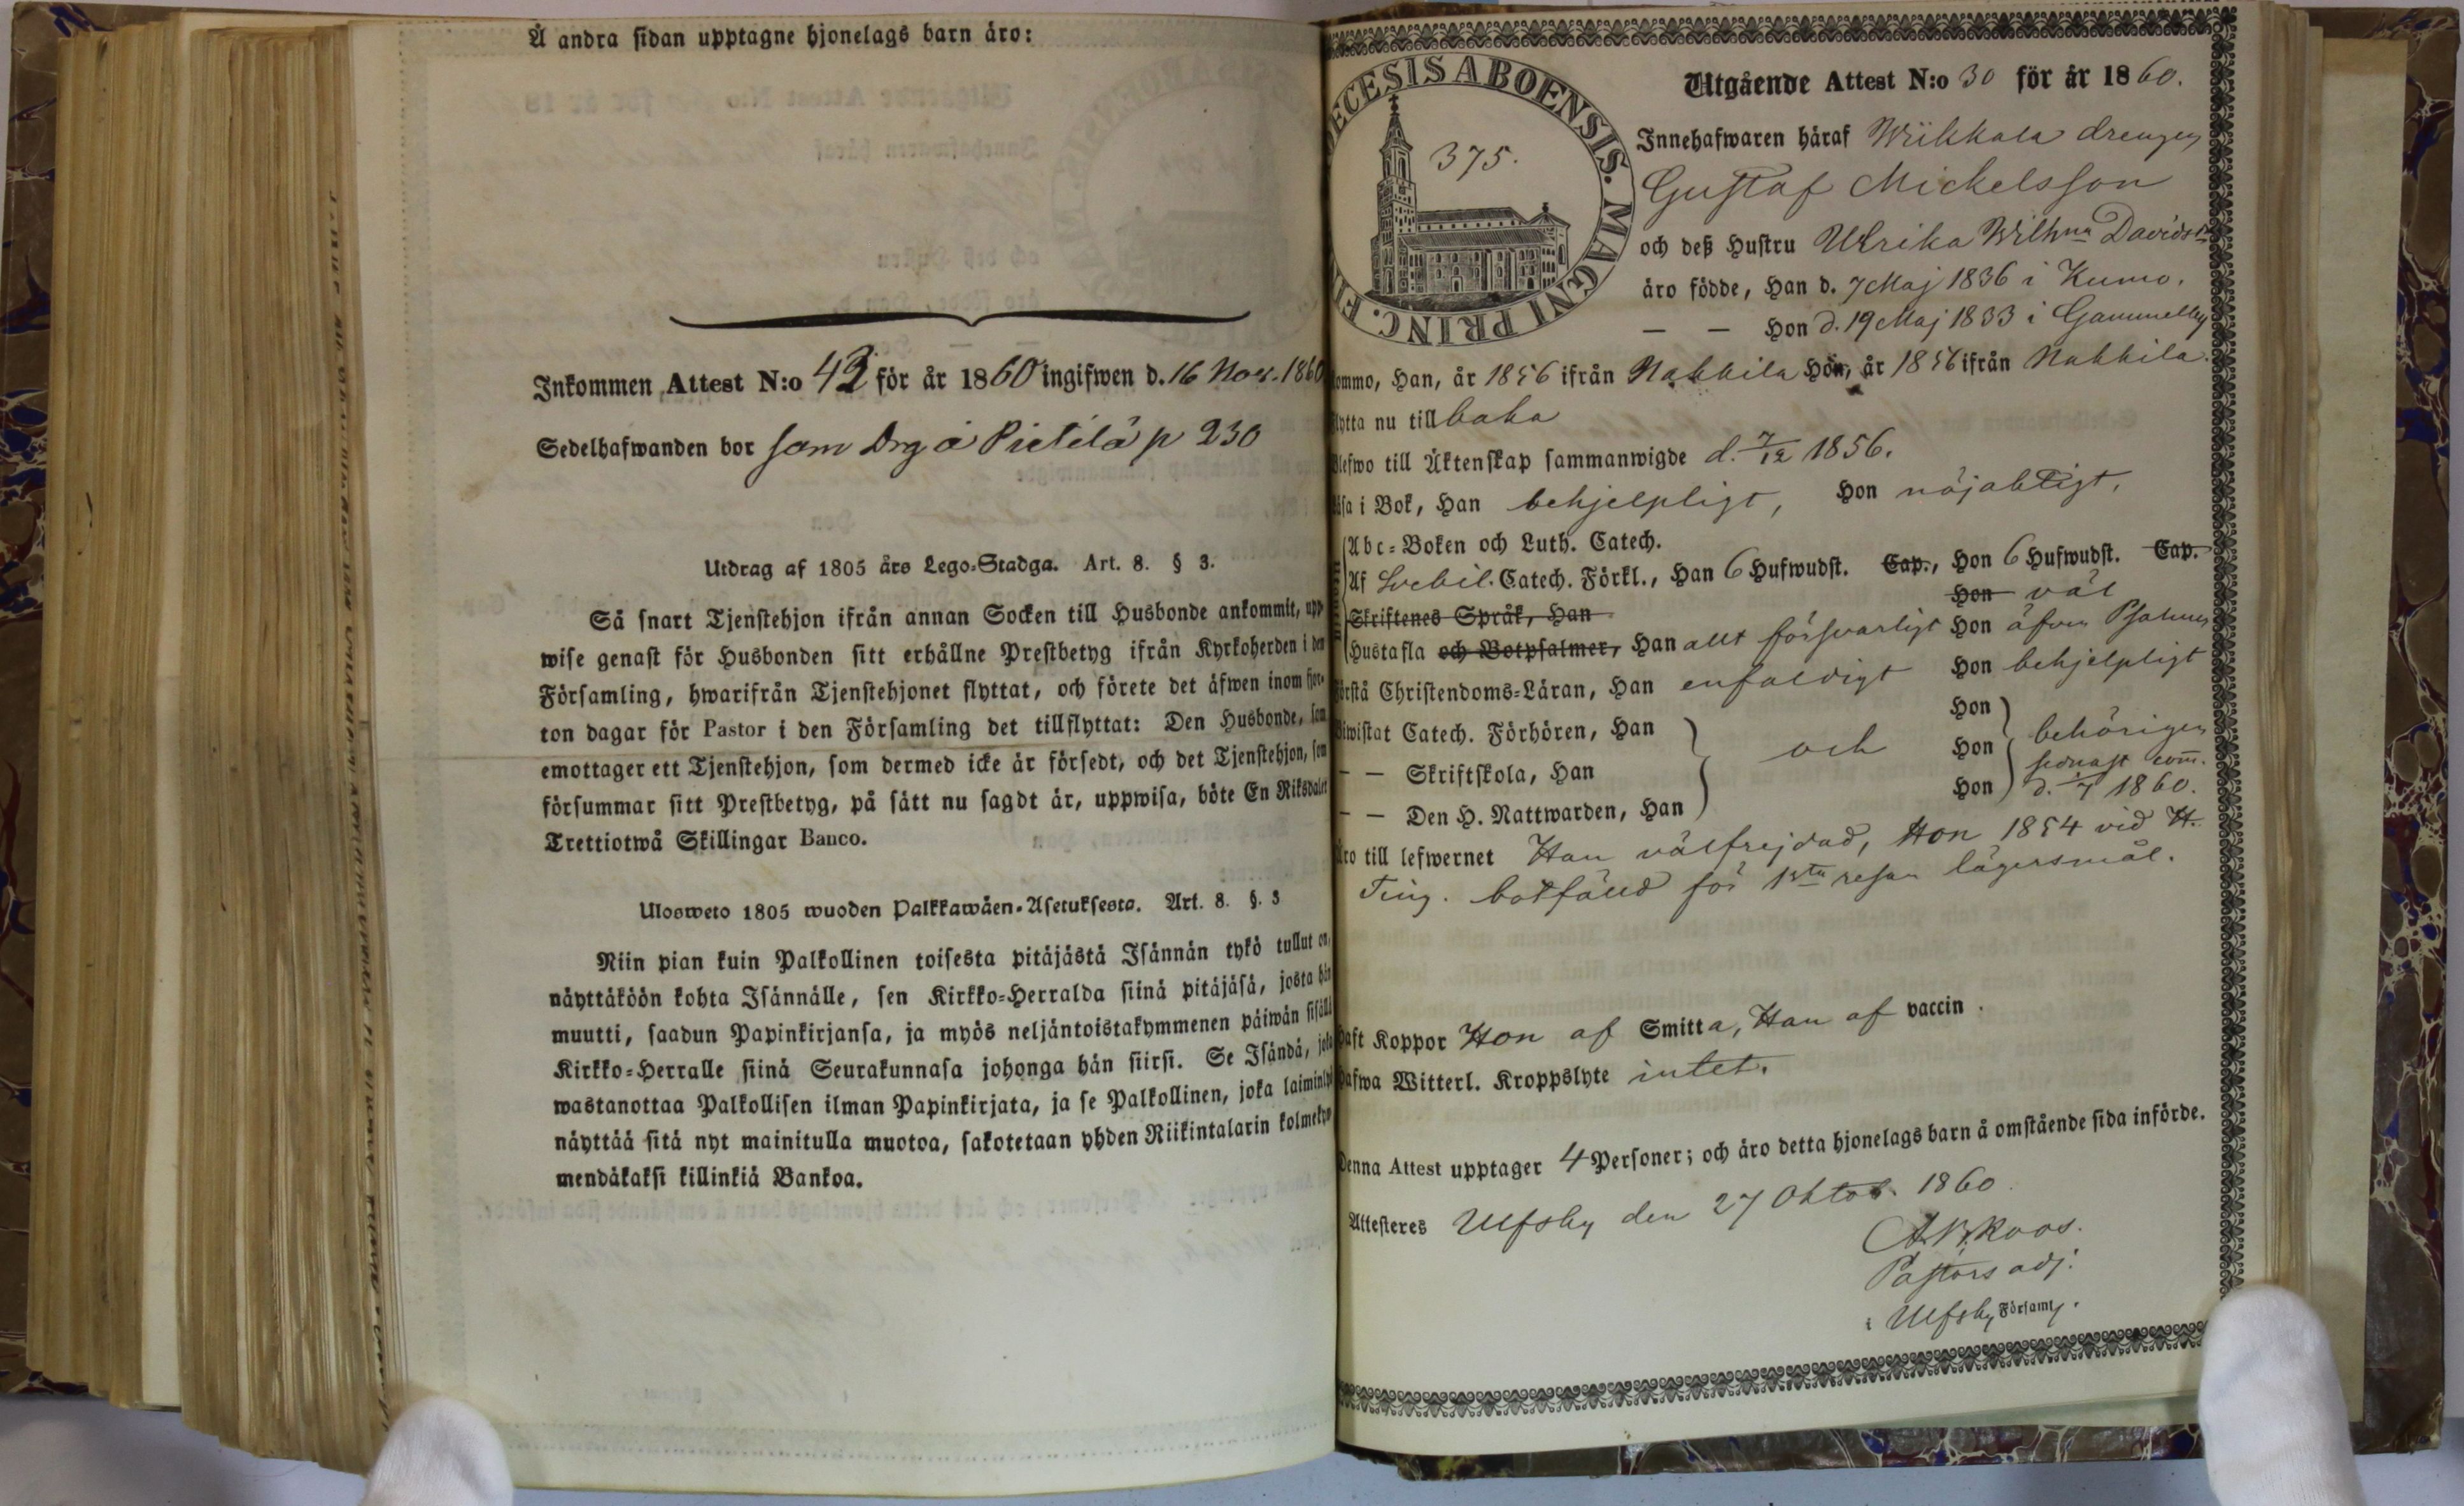 Å andra sidan upptagne hjonelags barn äro:
Inkommen Attest N:o 42 för år 1860 ingifwen d. 16 Nov. 1860
Sedelhafwanden bor som Drg å Pietilä p 230
Utdrag af 1805 års Lego-Stadga. Art. 8. § 3.
Så snart Tjenstehjon ifrån annan Socken till Husbonde ankommit, upp-
wise genast för Husbonden sitt erhållne Prestbetyg ifrån Kyrkoherden i den
Församling, hwarifrån Tjenstehjonet flyttat, och förete det äfwen inom fjor-
ton dagar för Pastor i den Församling det tillflyttat: Den Husbonde, som
emottager ett Tjenstehjon, som dermed icke är försedt, och det Tjenstehjon, som
försummar sitt Prestbetyg, på sätt nu sagdt är, uppwisa, böte En Riksdaler
Trettiotwå Skillingar Banco.
Ulosweto 1805 wuoden Palkkawäen-Asetuksesta. Art. 8. §. 3
Niin pian kuin Palkollinen toisesta pitäjästä Isännän tykö tullut on,
näyttäköön kohta Isännälle, sen Kirkko-Herralda siinä pitäjäsä, josta hän
muutti, saadun Papinkirjansa, ja myös neljäntoistakymmenen päiwän sisällä
Kirkko-Herralle siinä Seurakunnasa johonga hän siirsi. Se Isändä, joka
wastanottaa Palkollisen ilman Papinkirjata, ja se Palkollinen, joka laiminlyö
näyttää sitä nyt mainitulla muotoa, sakotetaan yhden Riikintalarin kolmekym-
mendäkaksi killinkiä Bankoa.
ECESIS ABOENSIS. MAGNI PRINC. FI
375.
Utgående Attest N:o 30 för år 1860.
Innehafwaren häraf Wiikkala drengen
Gustaf Mickelsson
och deß Hustru Ulrika Wilhna Davidsdr
äro födde, Han d. 7 Maj 1836 i Kumo.
— — Hon d. 19 Maj 1833 i Gammelby
kommo, Han, år 1856 ifrån Nakkila Hon, år 1856 ifrån Nakkila.
flytta nu tillbaka
Blefwo till Äktenskap sammanwigde d. 7/12 1856.
läsa i Bok, Han behjelpligt, Hon nöjaktigt,
Abc-Boken och Luth. Catech.
Af Svebil. Catech. Förkl., Han 6 Hufwudst. Cap., Hon 6 Hufwudst. Cap.
Skriftenes Språk, Han Hon väl
Hustafla och Botpsalmer, Han allt försvarligt Hon äfven Psalmer
förstå Christendoms-Läran, Han enfaldigt Hon behjelpligt
Biwistat Catech. Förhören, Han Hon
— — Skriftskola, Han och Hon behörigen
— — Den H. Nattwarden, Han Hon senast com. d. 1/7 1860.
Äro till lefwernet Han välfrejdad, Hon 1854 vid H.
Ting. botfälld för 1sta resan lägersmål.
Haft Koppor Hon af Smitta, Han af vaccin.
Hafwa Witterl. Kroppslyte intet.
Denna Attest upptager 4 Personer; och äro detta hjonelags barn å omstående sida införde.
Attesteres Ulfsby den 27 Oktob. 1860
Roos.
Pastors adj.
i Ulfsby Församl.